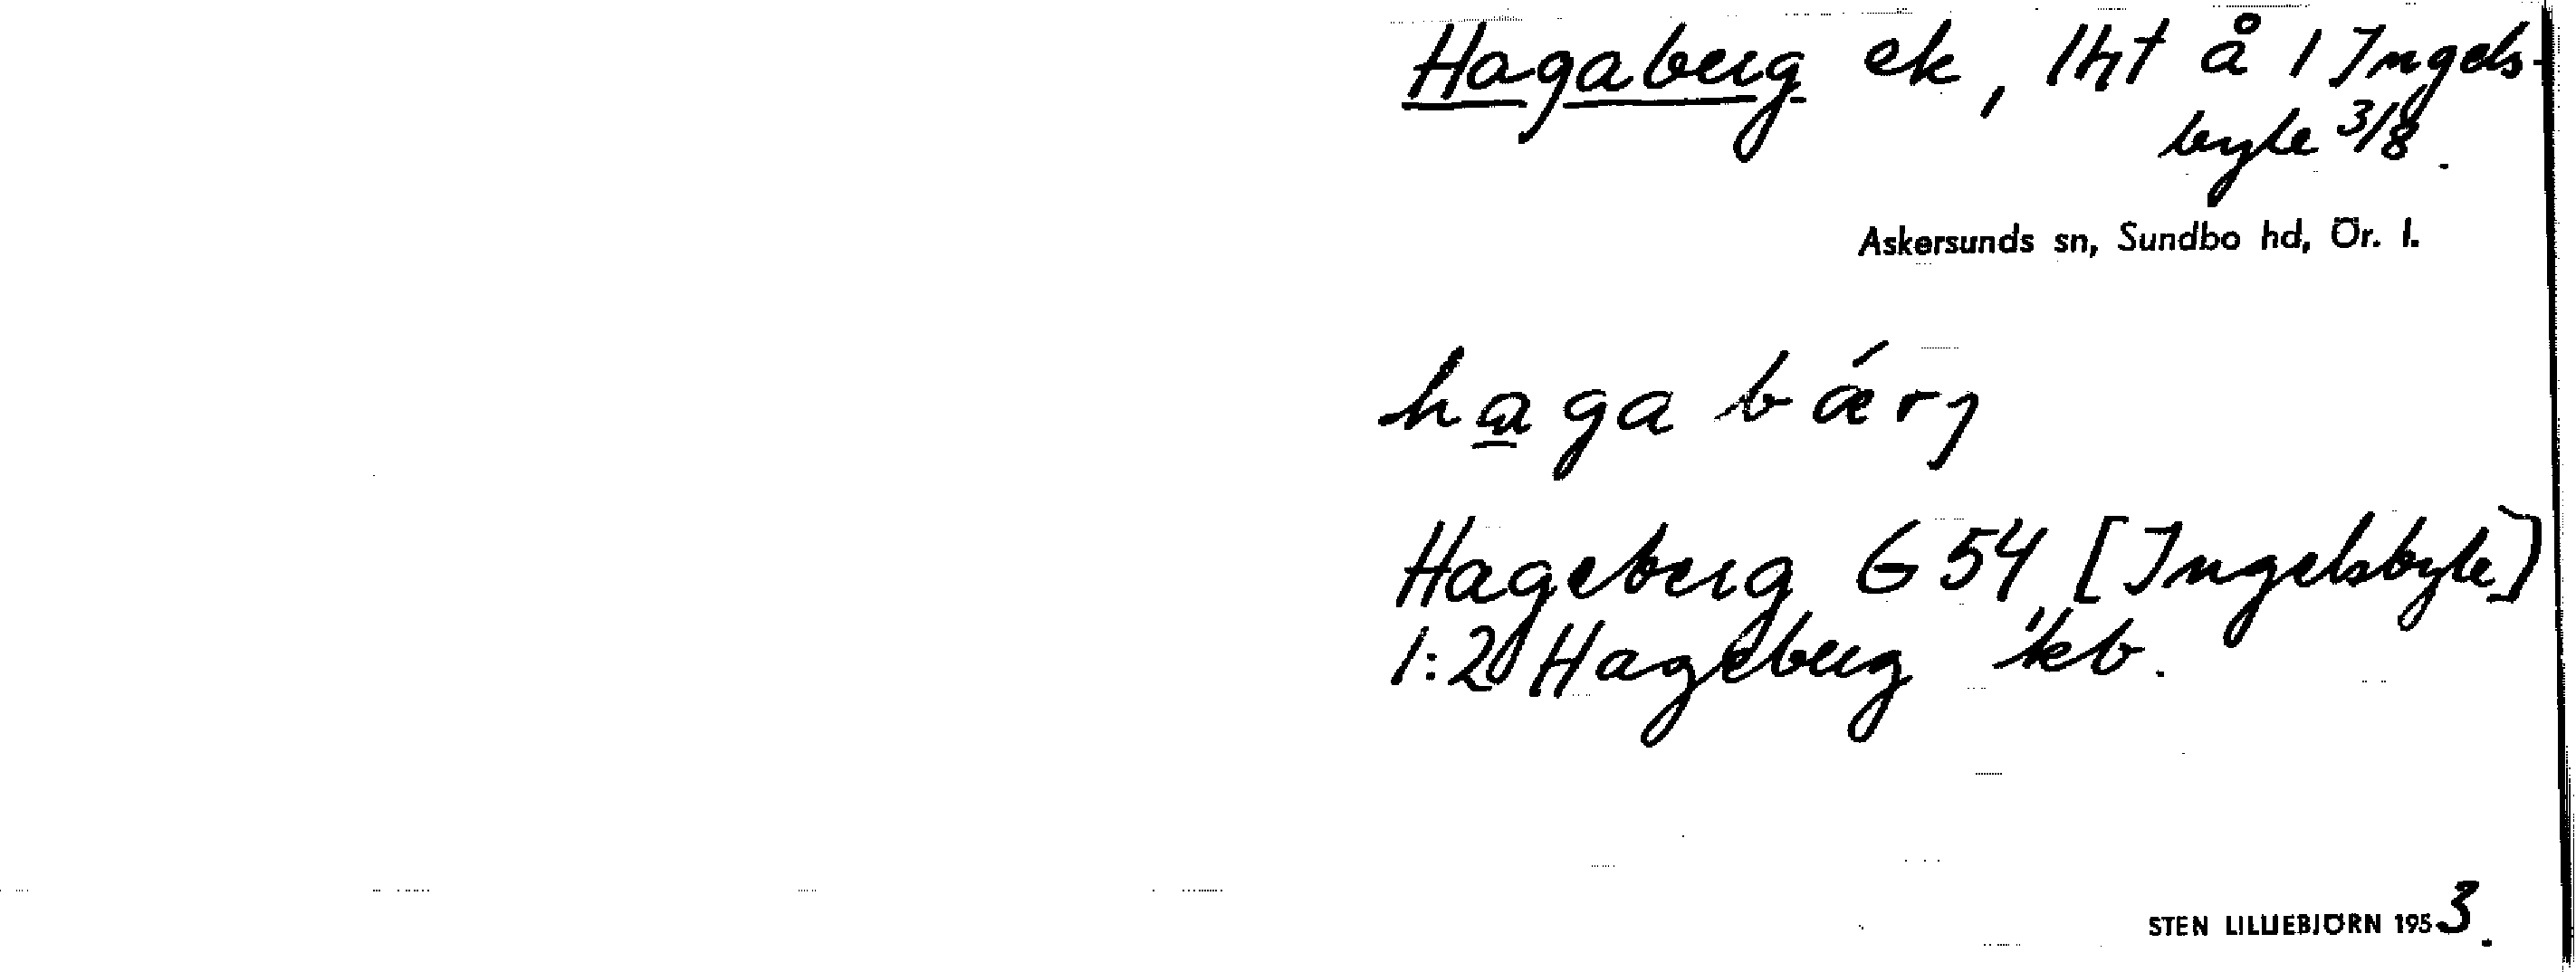 Hagaberg ek, lht å 1 Ingels-
byle 3/8.
Askersunds sn, Sundbo hd, Ör. l.
haga bǽrj
Hageberg G 54 [Ingelsbyle]
1:2 Hageberg jkb.
STEN LILLIEBJÖRN 1953.